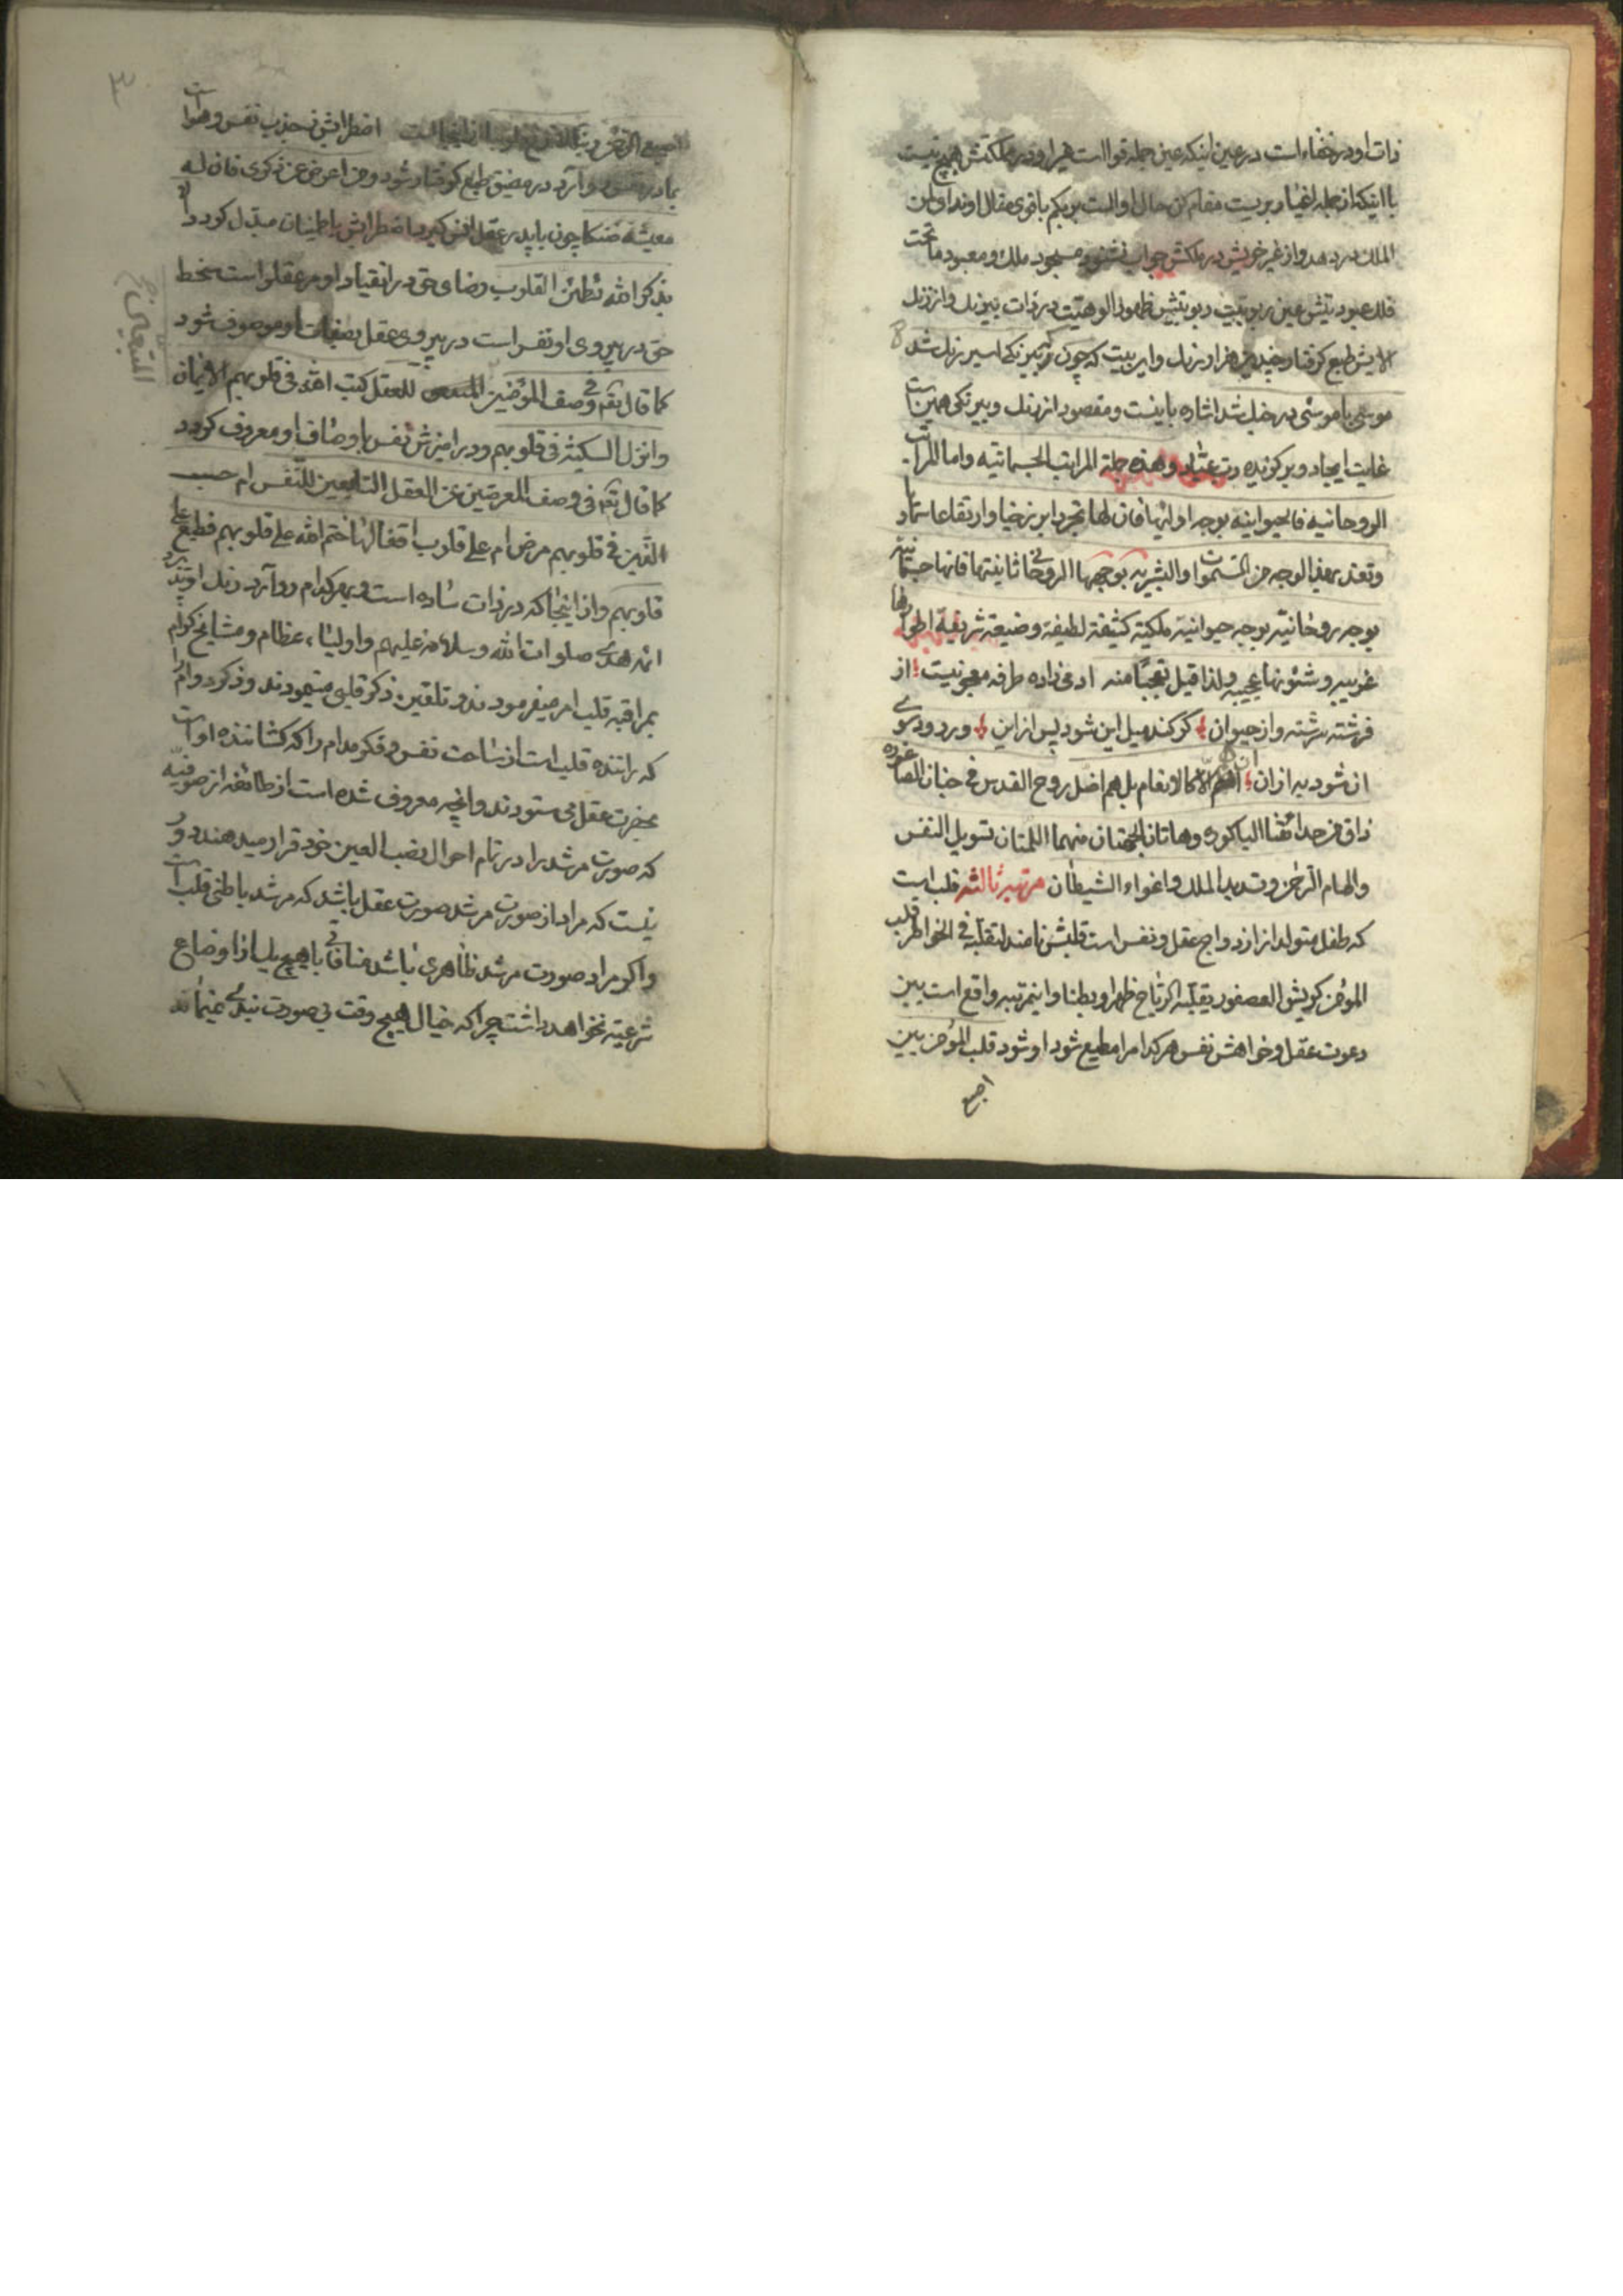 ذات او در خفاء است در عین اینکه عین جمله قوا است غیر او در مملکتش هیچ نیست
با اینکه از جمله اغیار بریست مقام لن حال او الست بربکم باقوی مقال او ندای لمن
الملک در دهد و از غیر خویش در ملکش جواب نشنود مسجود ملک و معبود ما تحت
فلک عبودیتش عین ربوبیت ربوبیتش ظهور الوهیت در ذات بیرنک و از رنک
الایش طبع کرفتار چندین هزار رنک و این بیت که چون که بیرنکی اسیر رنک شد
موسی با موسی در جنک شد اشاره باینست و مقصود از رنک و بیرنکی همین است
غایت ایجاد و بر کونده وهذه جملة المراتب الجسمانیه واما المراتب
الروحانیه فالحیوانیه بوجه اولیها فان لها تجردا برزخیا وارتفاعا سماویا
وتعد بهذا الوجه من السموات والبشریه بوجهها الروحانی ثانیتها فانها جسمانیة
بوجه روحانیة بوجه حیوانیة ملکیة کثیفة لطیفة وضیعة شریفة اطوارها
غریبه وشئونها عجیبه ولذا قیل تعجبا منه ادمی زاده طرفه معجونیست از
فرشته سرشته و از حیوان کر کند میل این شود پس از این ور رود سوی
ان شود به از ان ان هم الا کالانعام بل هم اضل روح القدس فی جنان الصاغوره
ذاق من حدائقنا الباکوره وهاتان الجهتان منهما اللمتان تسویل النفس
والهام الرحمن وتسدید الملک واغواء الشیطان مرتبه ثالثه قلب است
که طفل متولد از ازدواج عقل و نفس است قلبش نامند لتقلبه فی الخواطر قلب
المومن کریش العصفور یقلبه الریاح ظهرا وبطنا و اینمرتبه واقع است بین
دعوت عقل و خواهش نفس هر کدام را مطیع شود او شود قلب المؤمن بین
اصبع
۳
اصبعی الرحمن اضطرابش بجذب نفس و هوا است
بمادر نفس رو آرد در مضیق طبع کرفتار شود ومن اعرض عن ذکری فان له
معیشة ضنکا چون با پدر عقل انس کیرد اضطرابش باطمینان مبدل کردد الا
بذکر الله تطمئن القلوب رضای حق در انقیاد او مر عقل را است سخط
حق در پیروی او نفس است در پیروی عقل بصفات او موصوف شود
کما قال تعالی فی وصف المؤمنین للعقل کتب الله فی قلوبهم الایمان
المتبعین
وانزل السکینة فی قلوبهم و در امیزش نفس باوصاف او معروف کردد
کما قال تعالی فی وصف المعرضین عن العقل التابعین للنفس ام حسب
الذین فی قلوبهم مرض ام علی قلوب اقفالها ختم الله علی قلوبهم فطبع علی
قلوبهم و از اینجا که در ذات ساده است و بهر کدام رو آرد رنک او پذیرد
ائمه هدی صلوات الله وسلامه علیهم و اولیاء عظام و مشایخ کرام
بمراقبه قلب امر میفرمودند و تلقین ذکر قلبی مینمودند و ذکر دوام را
که راننده قلب است از ساحت نفس و فکر مدام را که کشاننده او است
بحضرت عقل می ستودند و انچه معروف شده است از طائفه از صوفیه
که صورت مرشد را در تمام احوال نصب العین خود قرار میدهند دور
نیست که مراد از صورت مرشد صورت عقل باشد که مرشد باطنی قلب است
و اکر مراد صورت مرشد ظاهری باشد منافاتی با هیچ یک از اوضاع
شرعیه نخواهد داشت چرا که خیال هیچ وقت بی صورت نیست